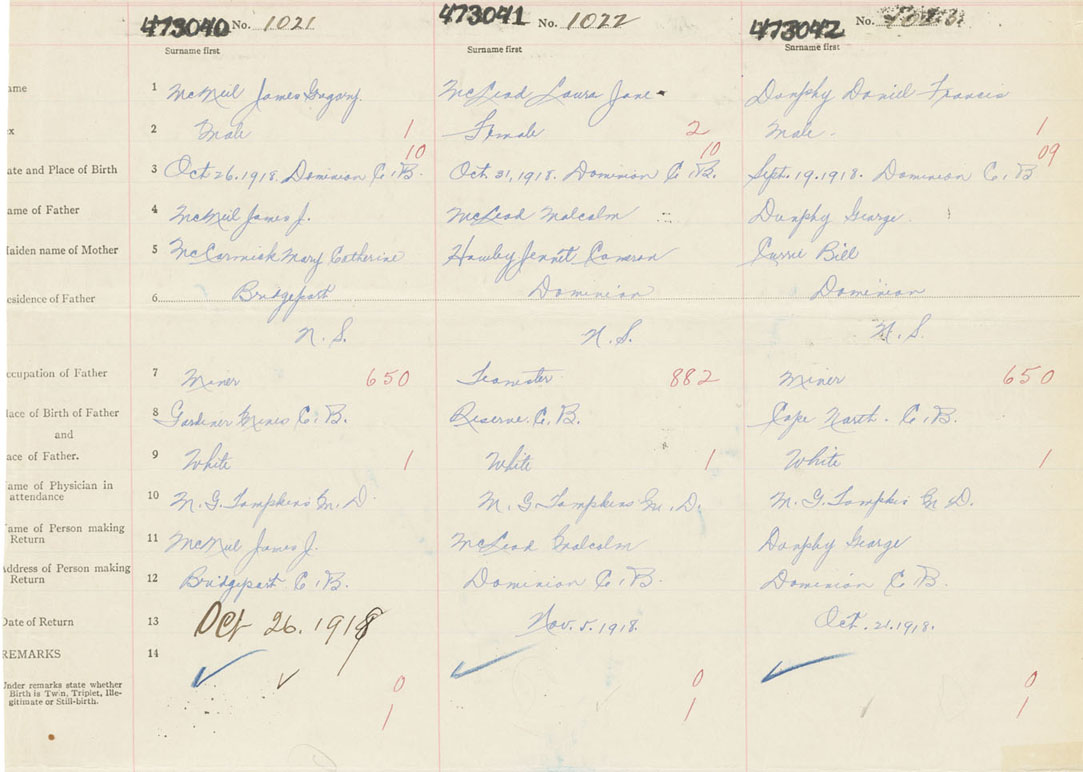 473040 No. 1021 473041 No. 1022 473042 No.
Surname first Surname first Surname first
ame 1 McNeil James Gregory. McLeod Laura Jane Dunphy Daniel Francis
x 2 Male 1 Female 2 Male. 1
10 10 09
ate and Place of Birth 3 Oct 26. 1918. Dominion C. B. Oct. 31, 1918. Dominion C. B. Sept. 19. 1918. Dominion C. B
ame of Father 4 McNeil James J. McLeod Malcolm Dunphy George
aiden name of Mother 5 McCormick Mary Catherine Hawley Jennet Cameron Currie Bill
esidence of Father 6 Bridgeport Dominion Dominion
N. S. N. S. N. S.
ccupation of Father 7 Miner 650 Teamster 882 Miner 650
lace of Birth of Father 8 Gardiner Mines C. B. Reserve C. B. Cape North. C. B.
and
ace of Father. 9 White 1 White 1 White 1
ame of Physician in
attendance 10 M. G. Tompkins M. D. M. G. Tompkins M. D. M. G. Tompkis M. D.
ame of Person making
Return 11 McNeil James J. McLeod Malcolm Dunphy George
Address of Person making
Return 12 Bridgeport C. B. Dominion C. B. Dominion C. B.
Date of Return 13 Oct 26. 1918 Nov. 5. 1918. Oct. 21. 1918.
REMARKS 14
Under remarks state whether 0 0 0
Birth is Twin, Triplet, Ille-
gitimate or Still-birth. 1 1 1